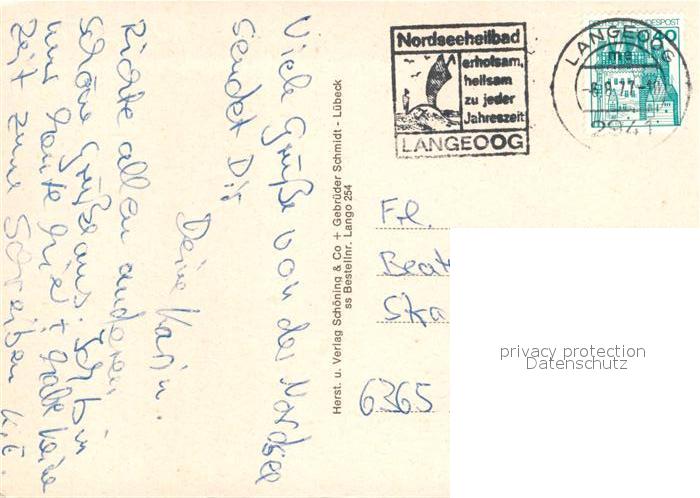 Viele Grüße von der Nordsee
sendet Dir
Deine Karin.
Richte allen anderen
schöne Grüße aus. Ich bin
nur heute hier + habe keine
Zeit zum Schreiben k.E.
Herst. u. Verlag Schöning & Co + Gebrüder Schmidt - Lübeck
ss Bestellnr. Lango 254
Nordseeheilbad
erholsam,
heilsam
zu jeder
Jahreszeit
LANGEOOG
DEUTSCHE BUNDESPOST
40
LANGEOOG
-8.8.77-
2941
Frl.
Beat
Ska
6365
privacy protection
Datenschutz